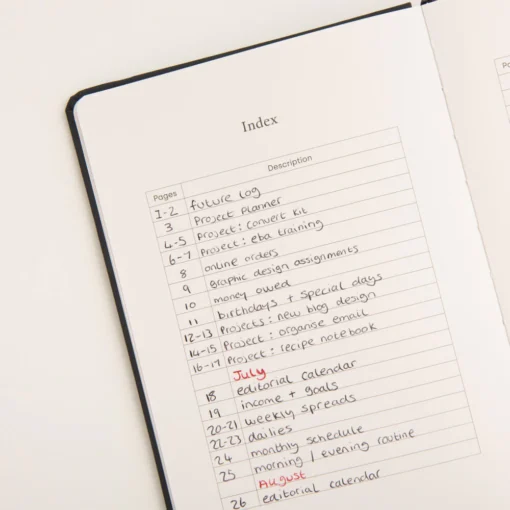 Index
Pages Description
1-2 future log
3 Project Planner
4-5 Project: Convert Kit
6-7 Project: eba training
8 online orders
9 graphic design assignments
10 money owed
11 birthdays + special days
12-13 Projects: new blog design
14-15 Project: organise email
16-17 Project: recipe notebook
July
18 editorial calendar
19 income + goals
20-21 weekly spreads
22-23 dailies
24 monthly schedule
25 morning / evening routine
August
26 editorial calendar